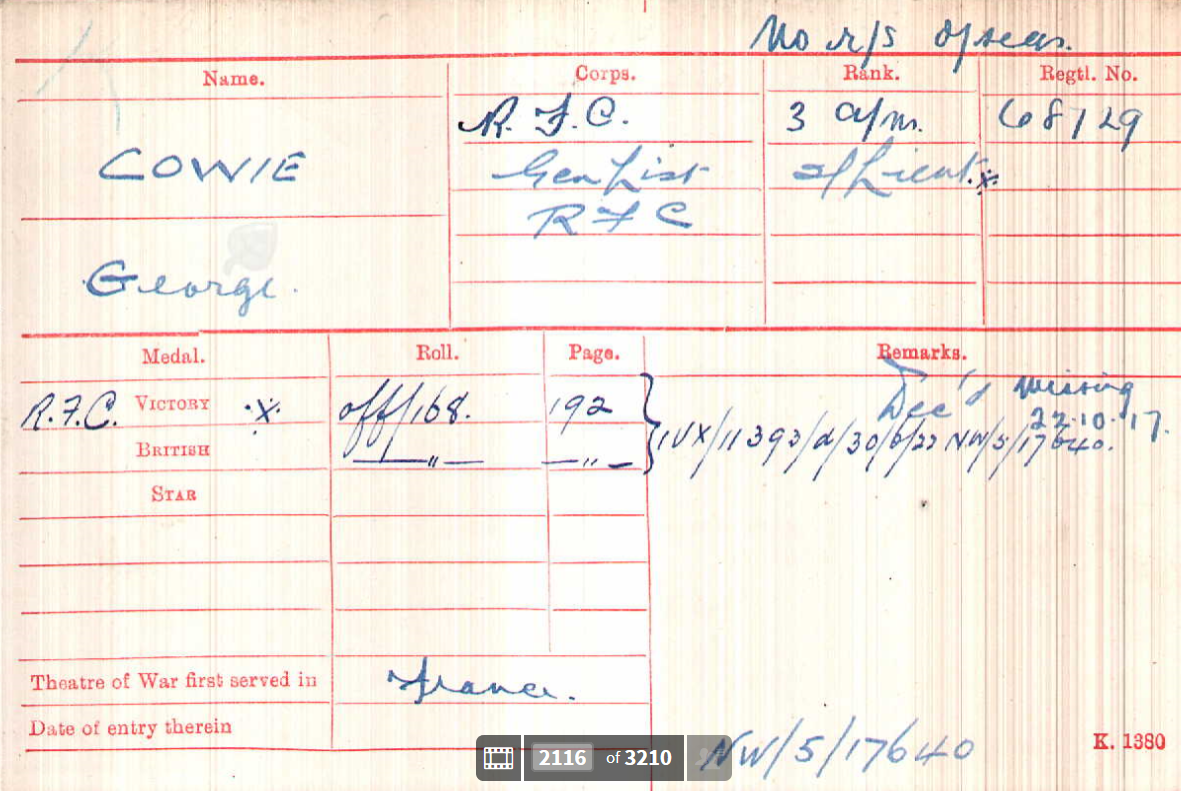 No r/s o/seas.
Name. Corps. Rank. Regtl. No.
R.F.C. 3 a/m. 68729
COWIE Gen List 2/Lieut. x
R F C
George.
Medal. Roll. Page. Remarks.
Dec'd Missing
R.F.C. VICTORY x off/168. 192 22.10.17.
BRITISH —„— —„— 1VX/11393/d/30/6/22 NW/5/17640.
STAR
Theatre of War first served in France.
Date of entry therein
NW/5/17640
K. 1380
2116 of 3210